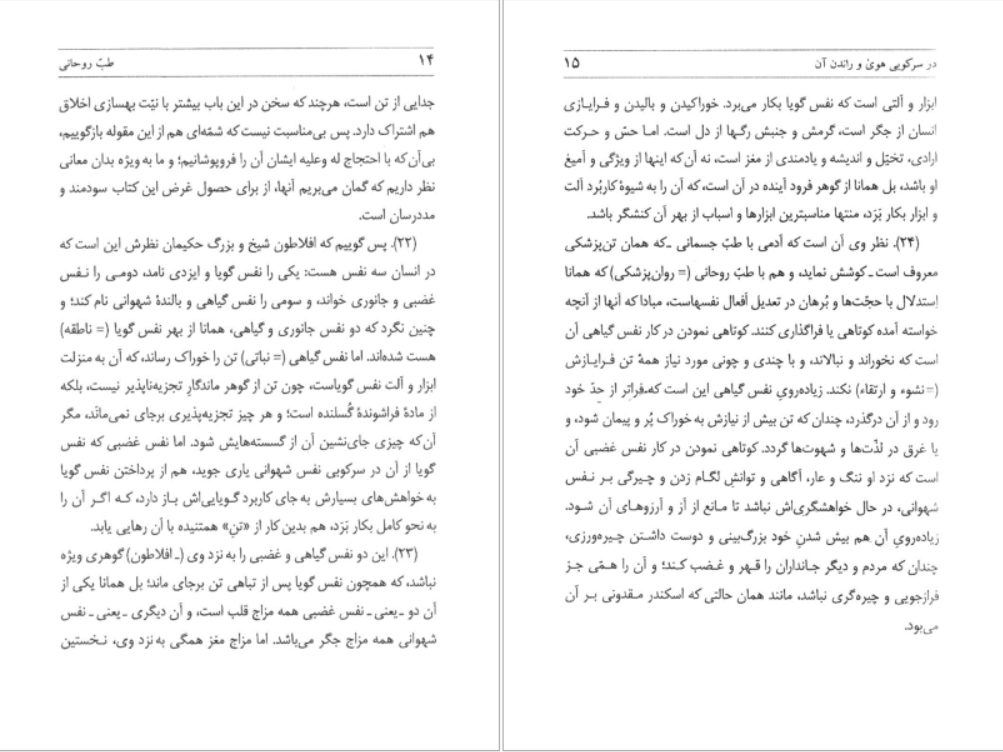 ۱۴
طبّ روحانی
جدایی از تن است، هرچند که سخن در این باب بیشتر با نیّت بهسازی اخلاق
هم اشتراک دارد. پس بی‌مناسبت نیست که شمّه‌ای هم از این مقوله بازگوییم،
بی‌آن‌که با احتجاج له وعلیه ایشان آن را فروپوشانیم؛ و ما به ویژه بدان معانی
نظر داریم که گمان می‌بریم آنها، از برای حصول غرض این کتاب سودمند و
مددرسان است.
(۲۲). پس گوییم که افلاطون شیخ و بزرگ حکیمان نظرش این است که
در انسان سه نفس هست: یکی را نفس گویا و ایزدی نامد، دومی را نفس
غضبی و جانوری خواند، و سومی را نفس گیاهی و بالندهٔ شهوانی نام کند؛ و
چنین نگرد که دو نفس جانوری و گیاهی، همانا از بهر نفس گویا (= ناطقه)
هست شده‌اند. اما نفس گیاهی (= نباتی) تن را خوراک رساند، که آن به منزلت
ابزار و آلت نفس گویاست، چون تن از گوهر ماندگارِ تجزیه‌ناپذیر نیست، بلکه
از مادهٔ فراشوندهٔ گُسلنده است؛ و هر چیز تجزیه‌پذیری برجای نمی‌مانَد، مگر
آن‌که چیزی جای‌نشین آن از گسسته‌هایش شود. اما نفس غضبی که نفس
گویا از آن در سرکوبی نفس شهوانی یاری جوید، هم از پرداختن نفس گویا
به خواهش‌های بسیارش به جای کاربرد گویایی‌اش باز دارد، که اگر آن را
به نحو کامل بکار بَرَد، هم بدین کار از «تنِ» همتنیده با آن رهایی یابد.
(۲۳). این دو نفس گیاهی و غضبی را به نزد وی (ـ افلاطون) گوهری ویژه
نباشد، که همچون نفس گویا پس از تباهی تن برجای ماند؛ بل همانا یکی از
آن دو ـ یعنی ـ نفس غضبی همه مزاج قلب است، و آن دیگری ـ یعنی ـ نفس
شهوانی همه مزاج جگر می‌باشد. اما مزاج مغز همگی به نزد وی، نخستین
در سرکوبی هوىٰ و راندن آن
۱۵
ابزار و آلتی است که نفس گویا بکار می‌برد. خوراکیدن و بالیدن و فرایازی
انسان از جگر است، گرمش و جنبش رگها از دل است. اما حسّ و حرکت
ارادی، تخیّل و اندیشه و یادمندی از مغز است، نه آن‌که اینها از ویژگی و آمیغ
او باشد، بل همانا از گوهر فرود آینده در آن است، که آن را به شیوهٔ کاربُرد آلت
و ابزار بکار بَرَد، منتها مناسبترین ابزارها و اسباب از بهر آن کنشگر باشد.
(۲۴). نظر وی آن است که آدمی با طبّ جسمانی ـ که همان تن‌پزشکی
معروف است ـ کوشش نماید، و هم با طبّ روحانی (= روان‌پزشکی) که همانا
اِستدلال با حجّت‌ها و بُرهان در تعدیل اَفعال نفسهاست، مبادا که آنها از آنچه
خواسته آمده کوتاهی یا فراگذاری کنند. کوتاهی نمودن در کار نفس گیاهی آن
است که نخوراند و نبالاند، و با چندی و چونی مورد نیاز همهٔ تن فرایازش
(=نشوء و ارتقاء) نکند. زیاده‌رویِ نفس گیاهی این است که فراتر از حدّ خود
رود و از آن درگذرد، چندان که تن بیش از نیازش به خوراک پُر و پیمان شود، و
یا غرق در لذّت‌ها و شهوت‌ها گردد. کوتاهی نمودن در کار نفس غضبی آن
است که نزد او ننگ و عار، آگاهی و توانشِ لگام زدن و چیرگی بر نفس
شهوانی، در حال خواهشگری‌اش نباشد تا مانع از آز و آرزوهای آن شود.
زیاده‌رویِ آن هم بیش شدنِ خود بزرگ‌بینی و دوست داشتن چیره‌ورزی،
چندان که مردم و دیگر جانداران را قهر و غضب کند؛ و آن را همّی جز
فرازجویی و چیره‌گری نباشد، مانند همان حالتی که اسکندر مقدونی بر آن
می‌بود.